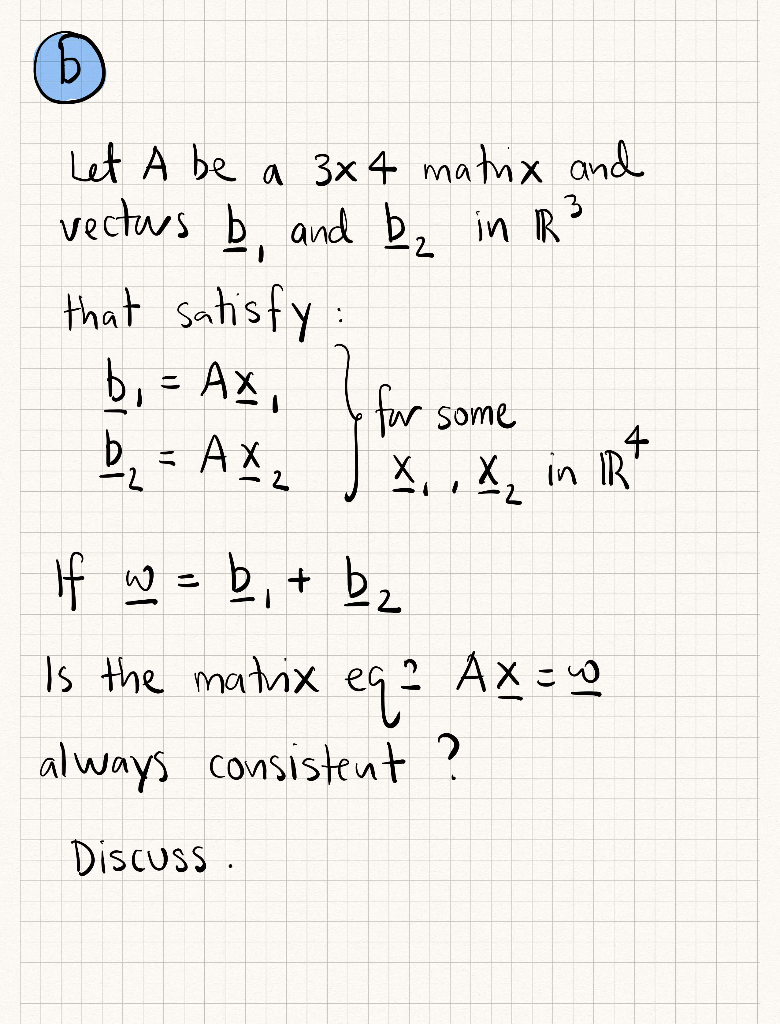 b
Let A be a 3x4 matrix and
vectors b₁ and b₂ in ℝ³
that satisfy:
b₁ = Ax₁
b₂ = Ax₂
for some
x₁, x₂ in ℝ⁴
If w = b₁ + b₂
Is the matrix eqⁿ Ax = w
always consistent?
Discuss.